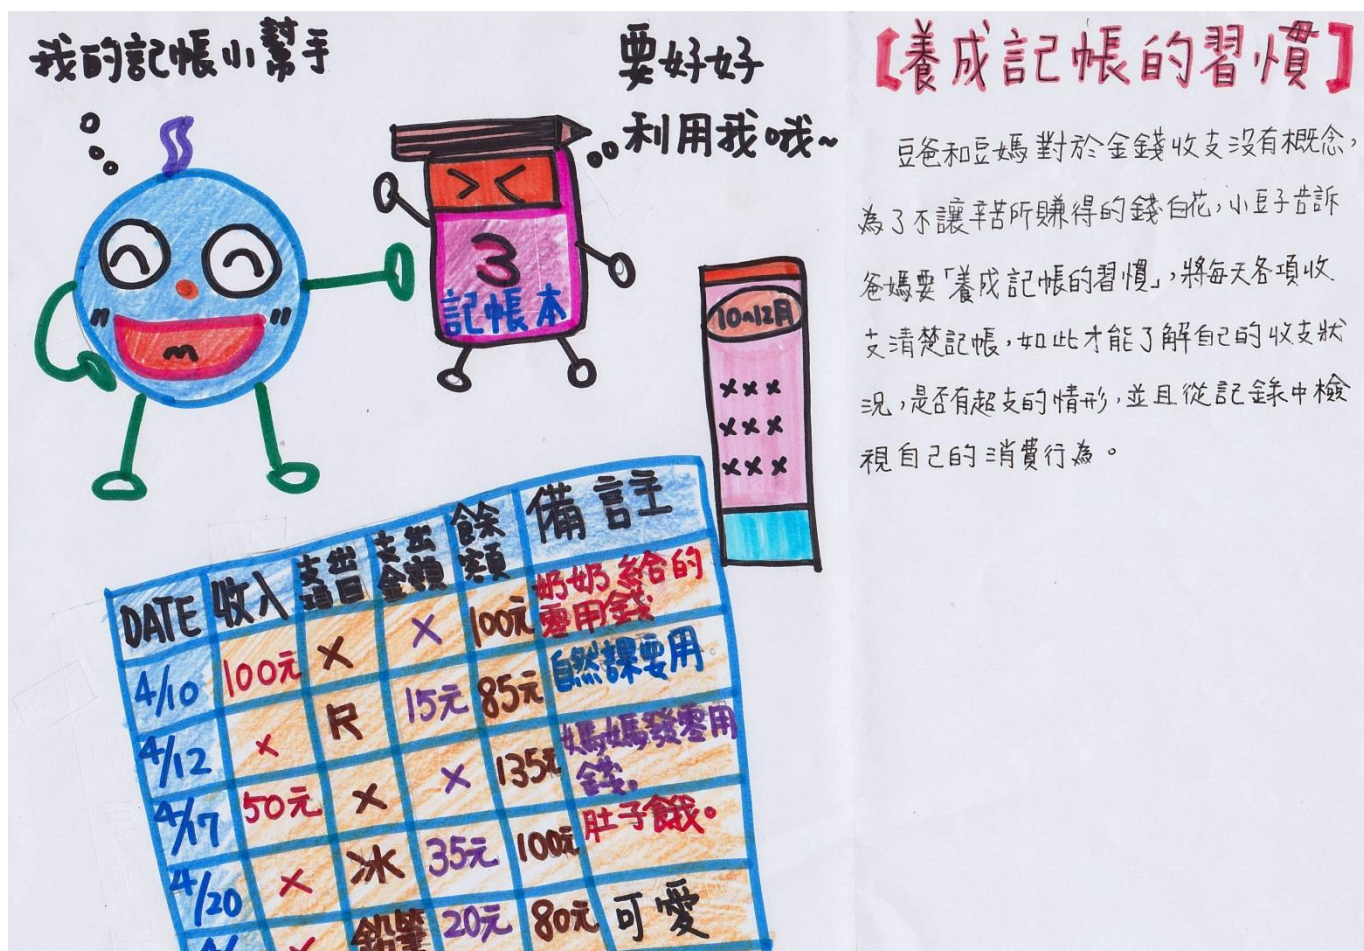 我的記帳小幫手
要好好
利用我哦~
3
記帳本
10~12月
×××
×××
×××
DATE 收入 支出項目 支出金額 餘額 備註
4/10 100元 × × 100元 奶奶給的零用錢
4/12 × 尺 15元 85元 自然課要用
4/17 50元 × × 135元 媽媽發零用錢。
4/20 × 冰 35元 100元 肚子餓。
4/ × 鉛筆 20元 80元 可愛
【養成記帳的習慣】
豆爸和豆媽對於金錢收支沒有概念,
為了不讓辛苦所賺得的錢白花,小豆子告訴
爸媽要「養成記帳的習慣」,將每天各項收
支清楚記帳,如此才能了解自己的收支狀
況,是否有超支的情形,並且從記錄中檢
視自己的消費行為。